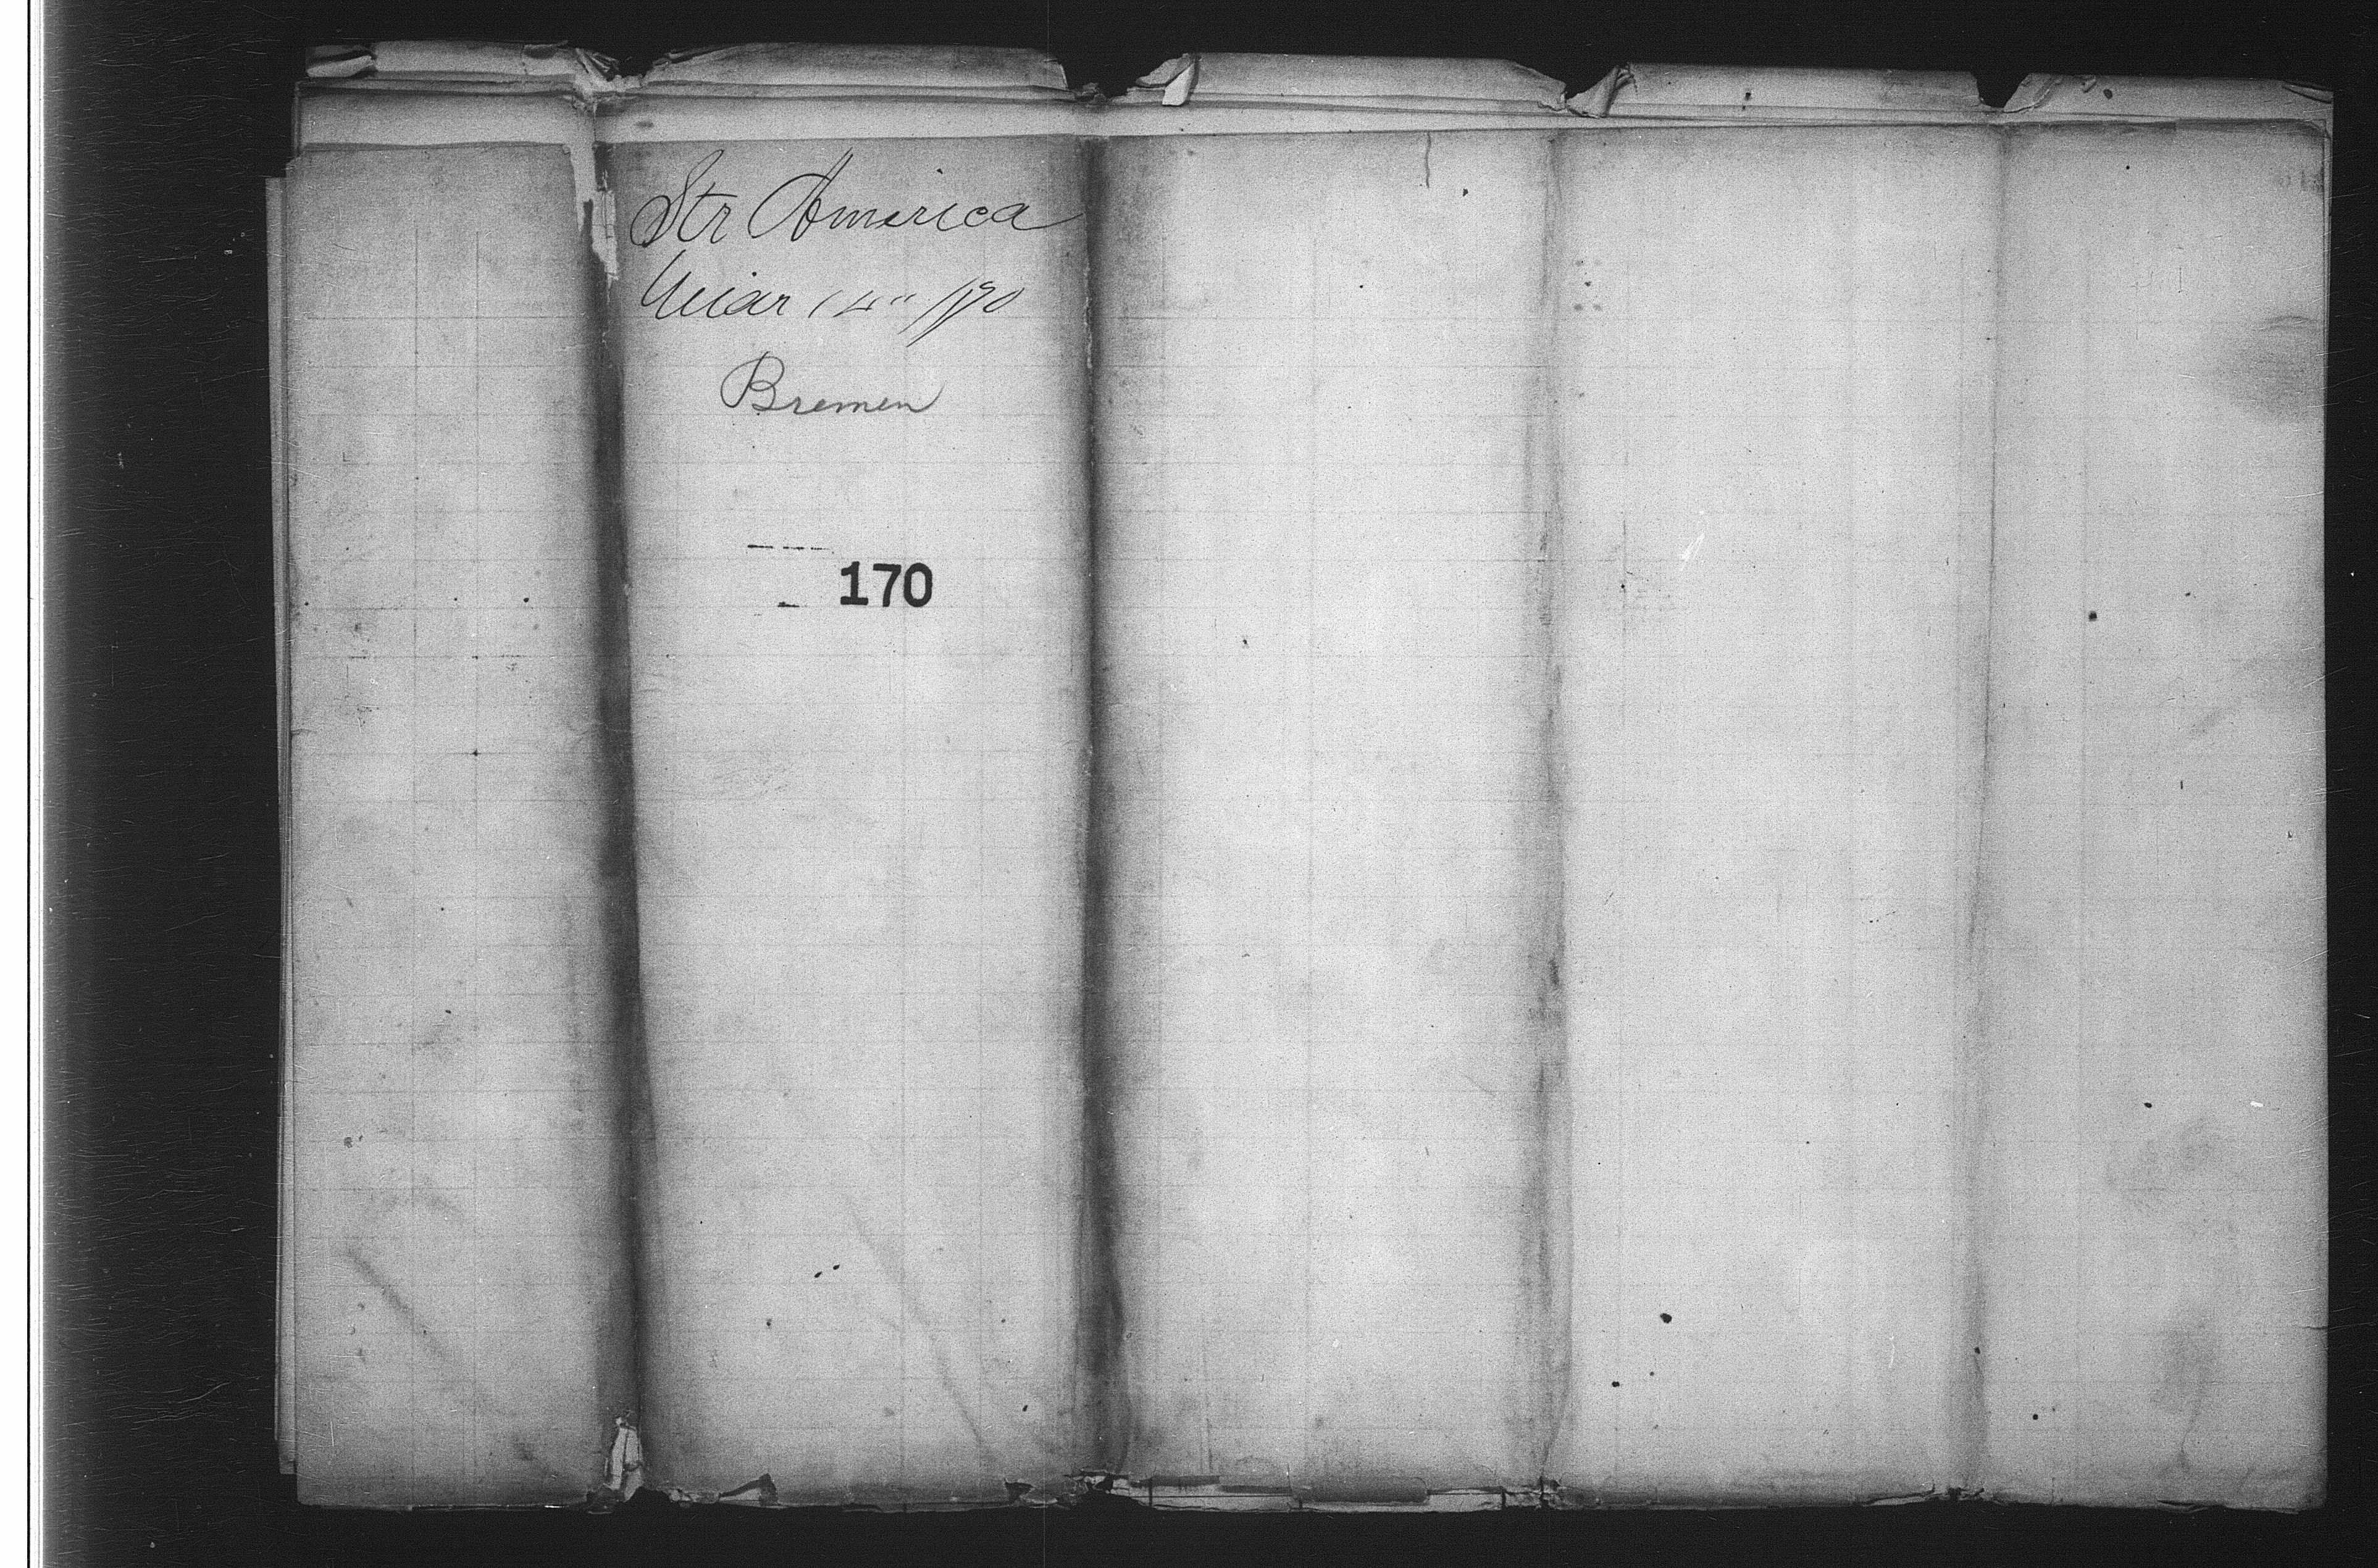 Str America
Mar 14" 1890
Bremen
170